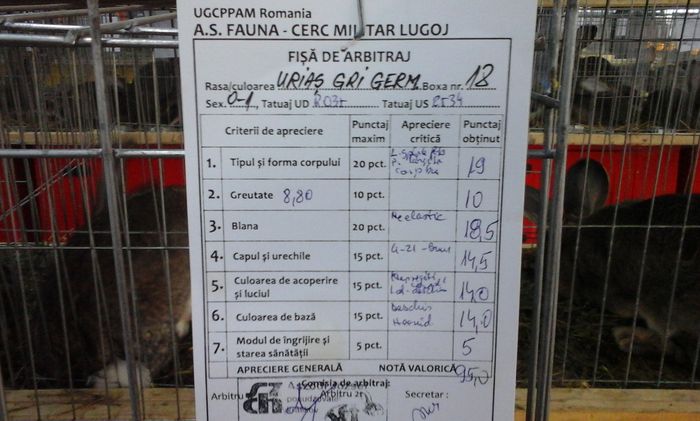 UGCPPAM Romania
A.S. FAUNA - CERC MILITAR LUGOJ
FIȘĂ DE ARBITRAJ
Rasa/culoarea URIAȘ GRI GERM. Boxa nr. 18
Sex. 0-1 Tatuaj UD Tatuaj US
Criterii de apreciere Punctaj maxim Apreciere critică Punctaj obținut
1. Tipul și forma corpului 20 pct. 19
2. Greutate 8,80 10 pct. 10
3. Blana 20 pct. elastic 18,5
4. Capul și urechile 15 pct. 14,5
5. Culoarea de acoperire și luciul 15 pct. 14,0
6. Culoarea de bază 15 pct. 14,0
7. Modul de îngrijire și starea sănătății 5 pct. 5
APRECIERE GENERALĂ NOTĂ VALORICĂ 95,0
Comisia de arbitraj:
Arbitru Arbitru Secretar :